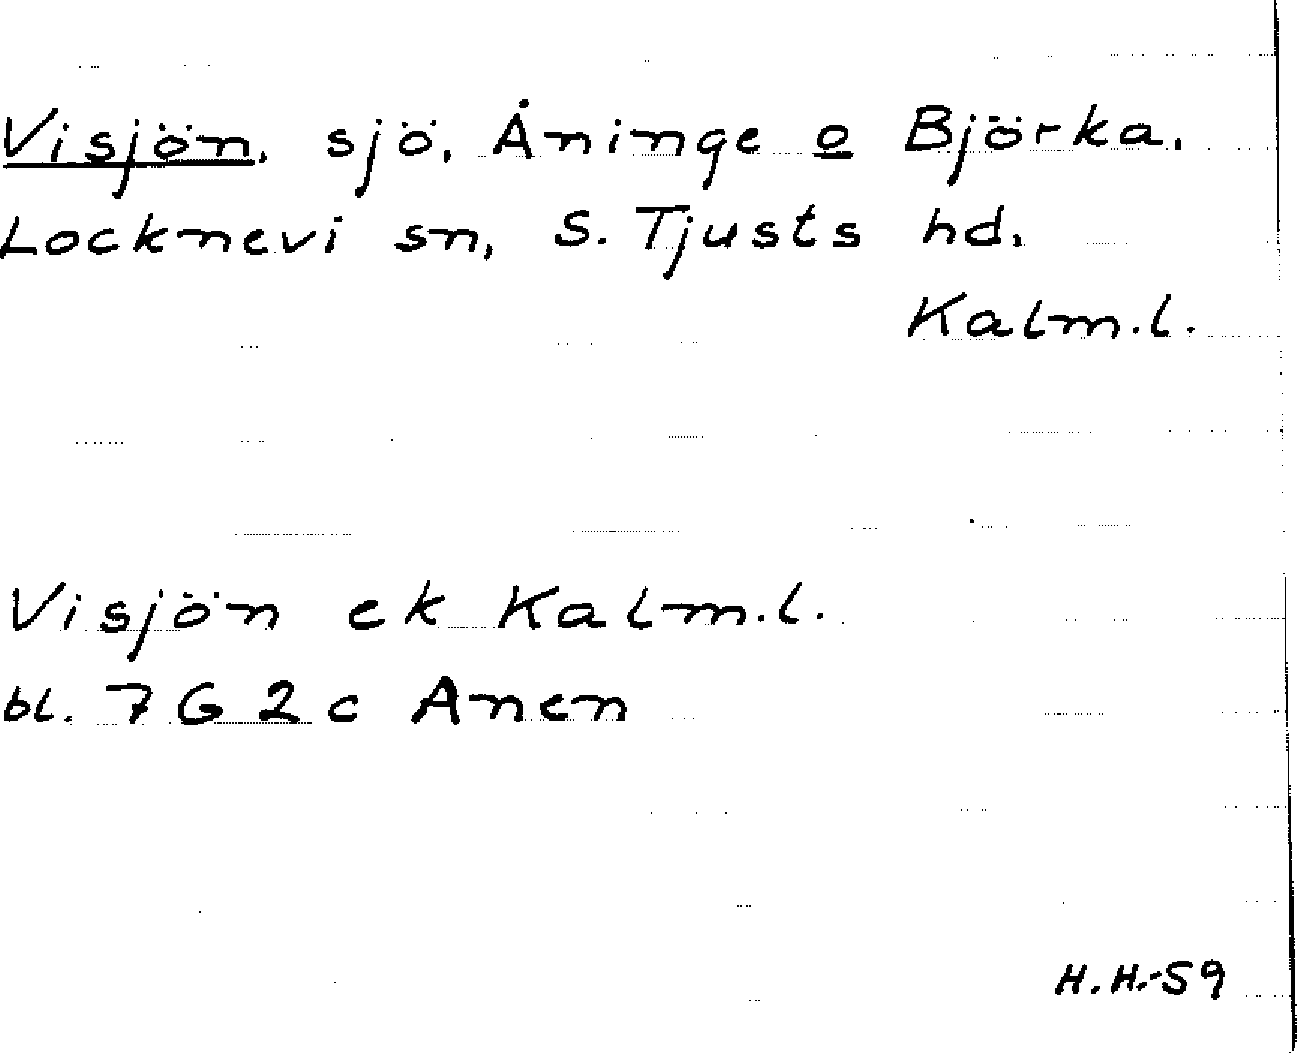 Visjön, sjö, Åninge o Björka,
Locknevi sn, S. Tjusts hd,
Kalm.l.
Visjön ek Kalm.l.
bl. 7 G 2 c Anen
H.H.-59